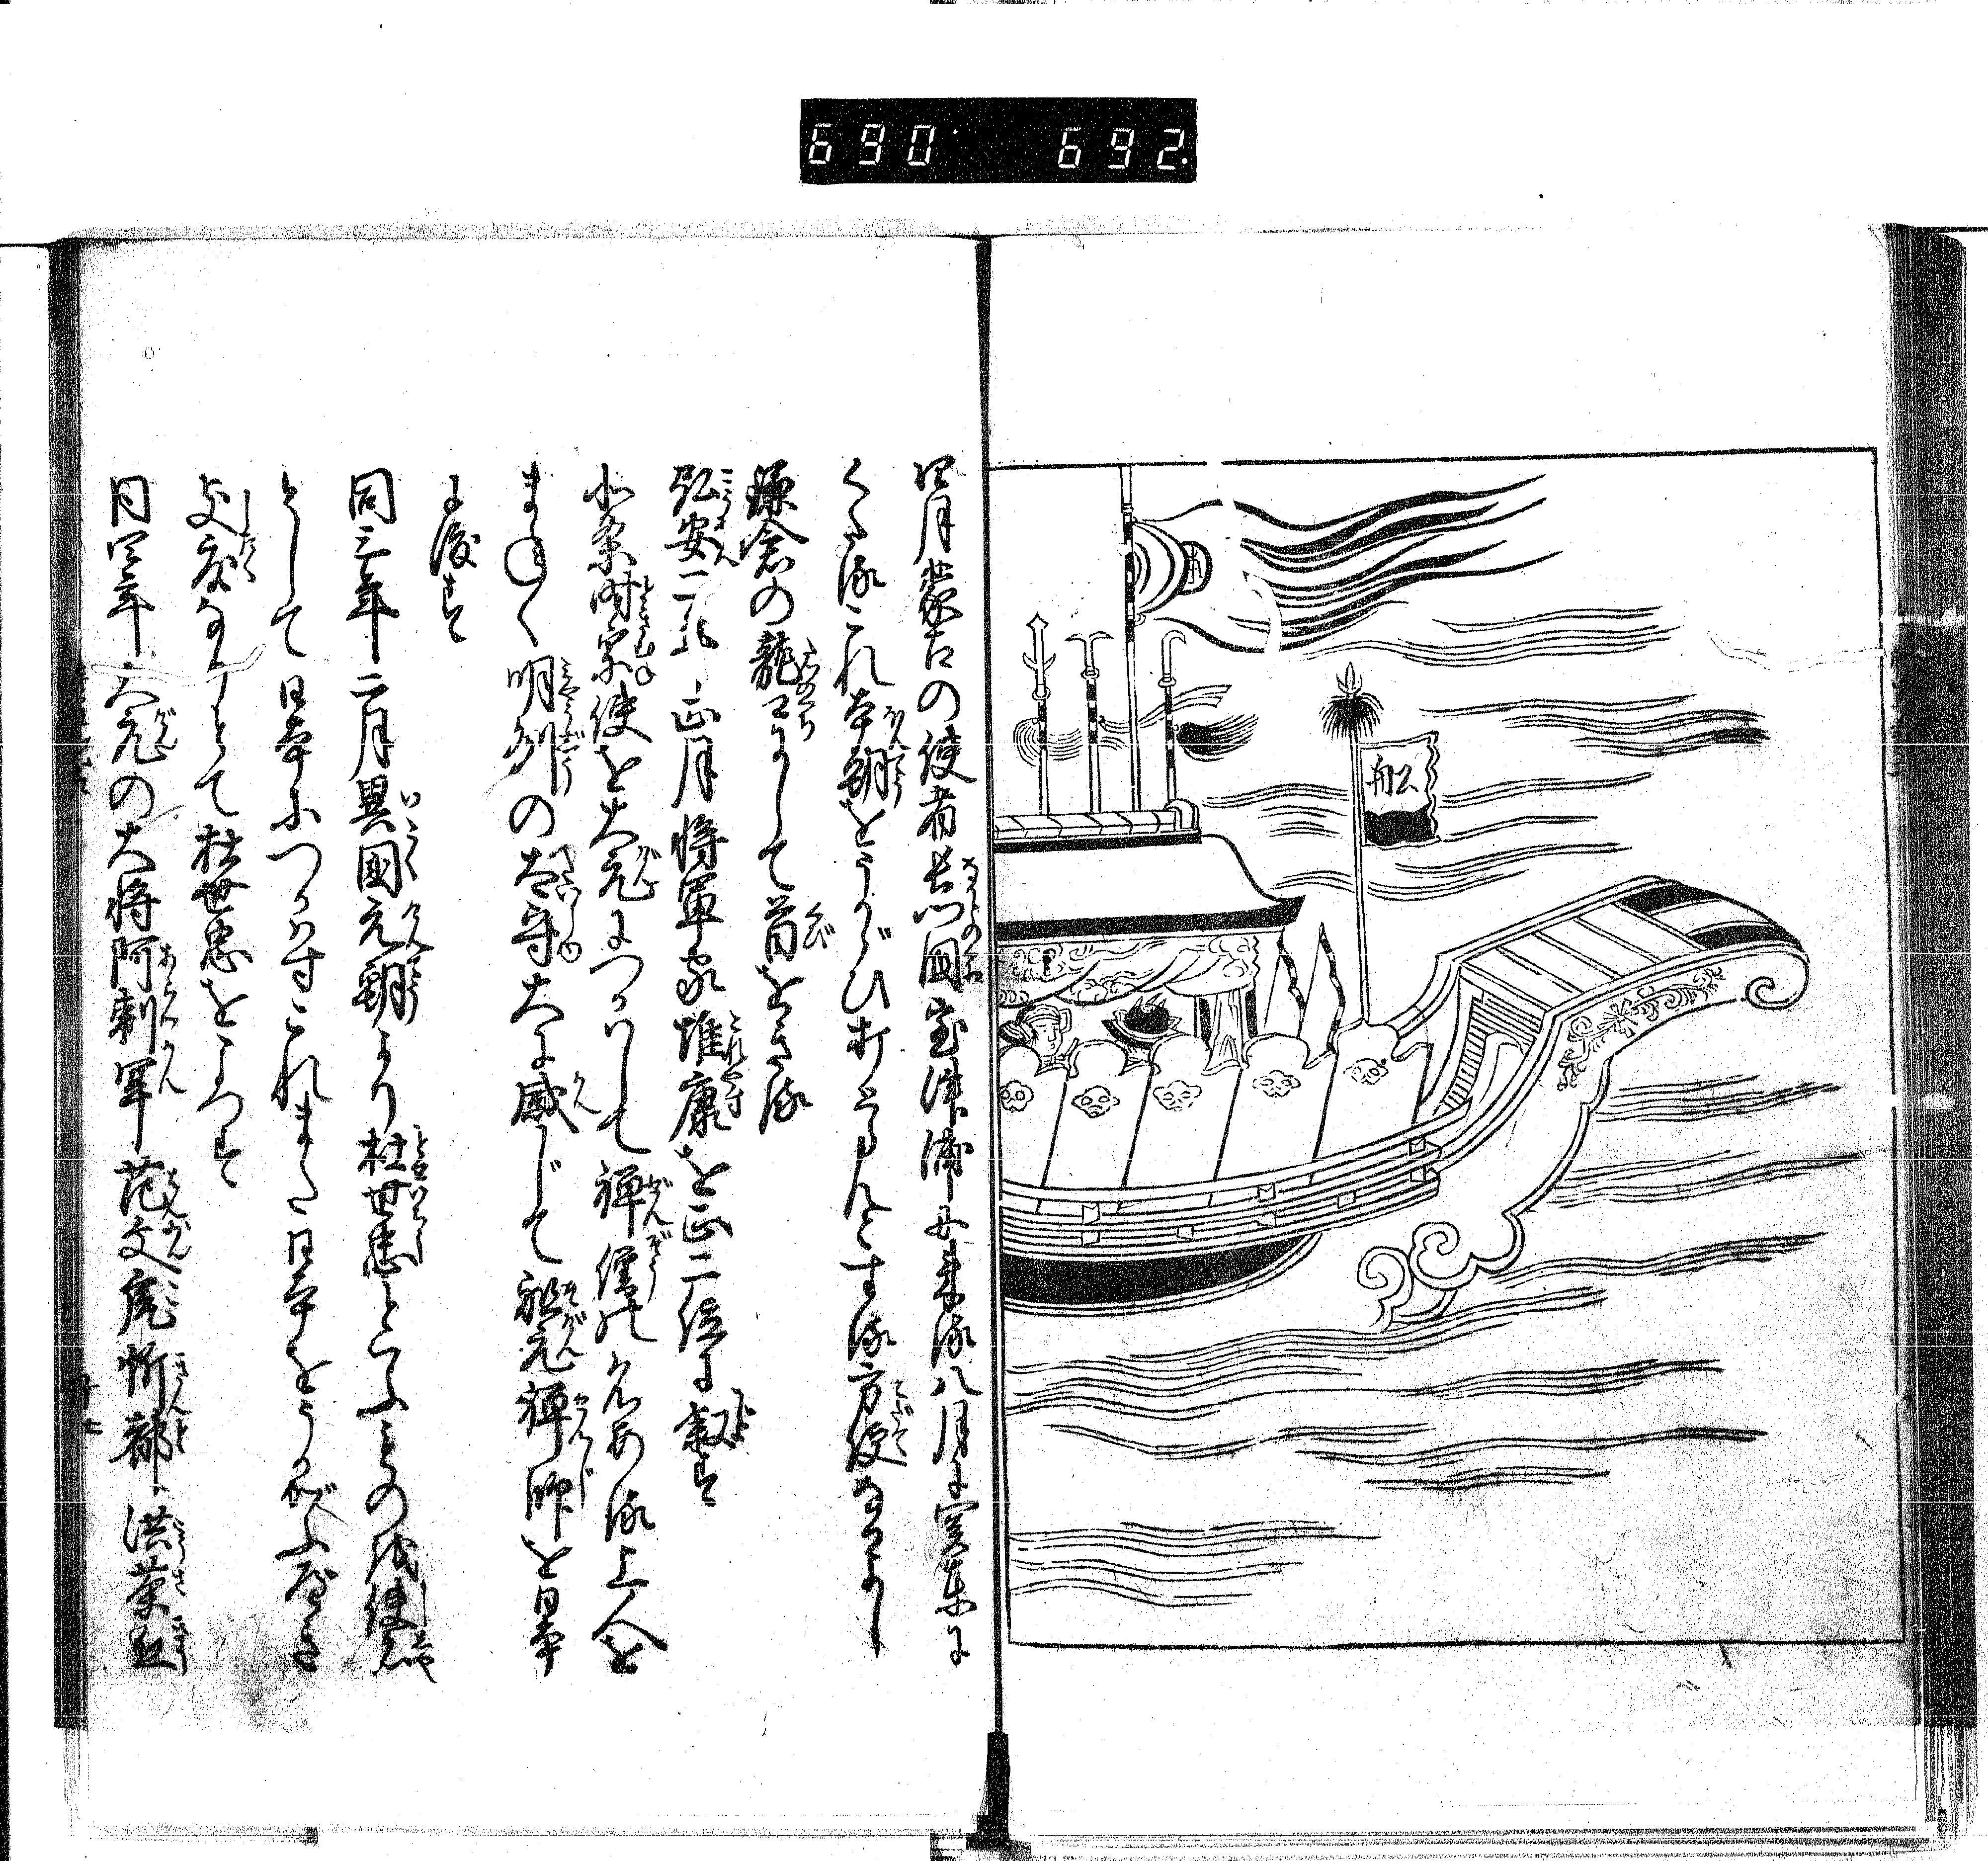 690 692
船
四月蒙古の使者長門国室津浦に来る八月に関東に
くだるこれ本朝をうかゞひ打とらんとする方便なるよし
鎌倉の龍口にして首をきる
弘安二年正月将軍家惟康を正二位に叙す
北条時宗使を大元につかはして禅僧の人ある上人を
まねく明州の太守大に感じて祖元禅師を日本
に渡す
同三年二月異国元朝より杜世忠といふもの使者
として日本につかはすこれまた日本をうかがふ
支度なりとて杜世忠をころす
同四年大元の大将阿剌罕范文虎忻都洪茶丘